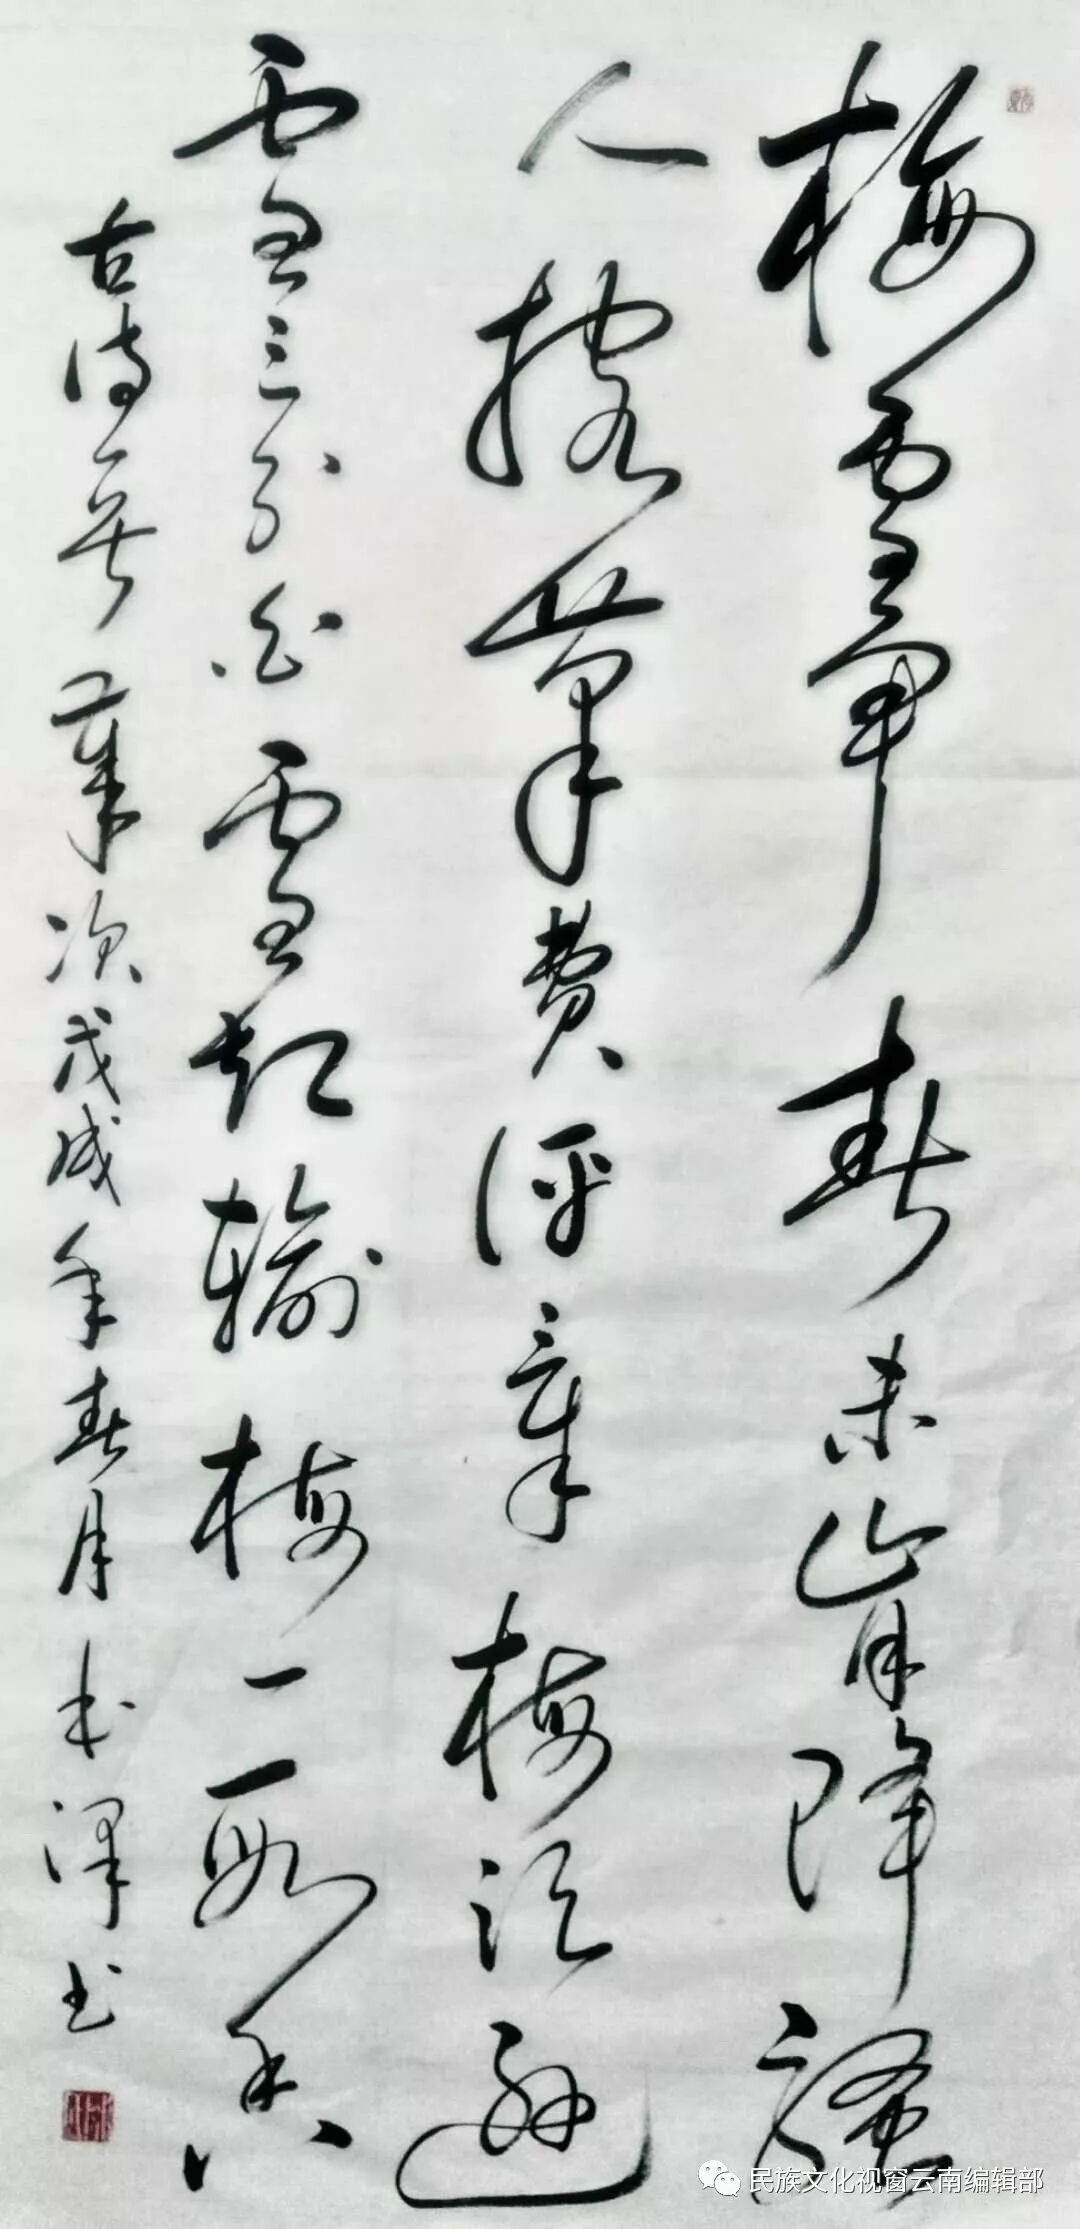 梅雪争春未肯降骚
人搁筆费评章梅须逊
雪三分白雪却输梅一段香
古诗一首 岁次戊戌年春月 泽书
民族文化视窗云南编辑部